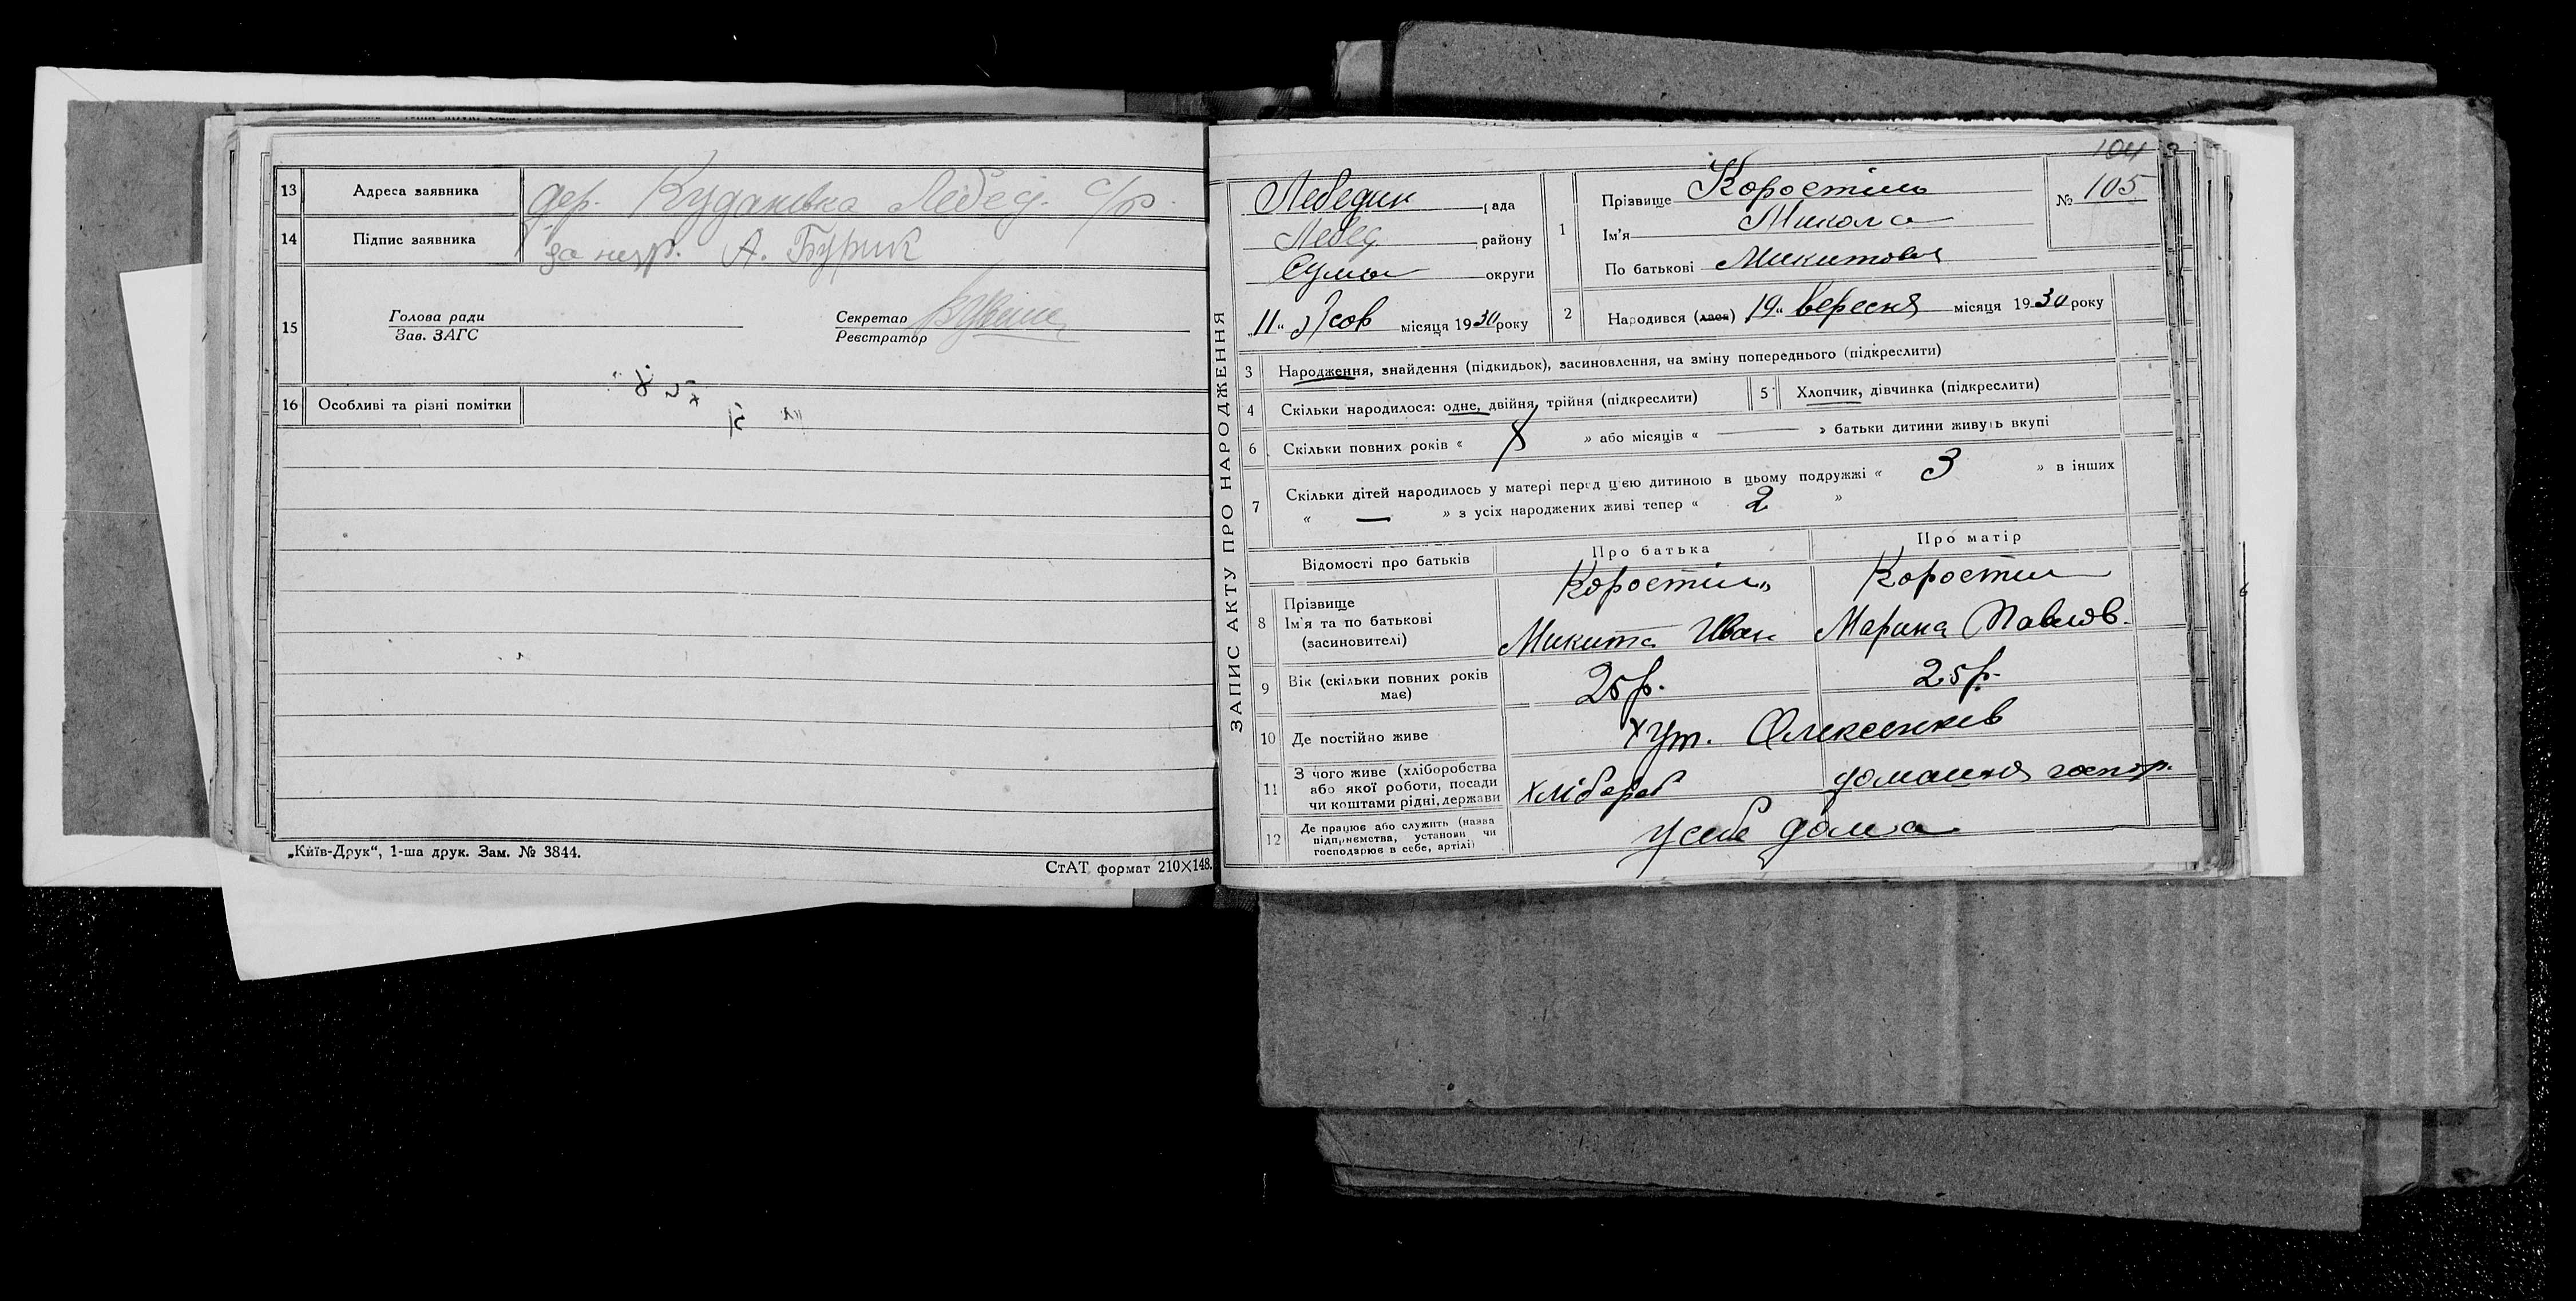 13 Адреса заявника дер. Кудановка Лебед. с/р.
14 Підпис заявника за незр. А. Бурик
15 Голова ради
Зав. ЗАГС
Секретар
Реєстратор
16 Особливі та різні помітки
„Київ-Друк“, 1-ша друк. Зам. № 3844.
СтАТ формат 210×148.
ЗАПИС АКТУ ПРО НАРОДЖЕННЯ
104
Лебедин рада
Лебед району
Сумы округи
„11“ Жов місяця 1930 року
1 Прізвище Коростіль
Ім'я Микола
По батькові Микитович
№ 105
2 Народився (лася) 19 „ вересня місяця 1930 року
3 Народження, знайдення (підкидьок), засиновлення, на зміну попереднього (підкреслити)
4 Скільки народилося: одне, двійня, трійня (підкреслити)
5 Хлопчик, дівчинка (підкреслити)
6 Скільки повних років « 8 » або місяців « — » батьки дитини живуть вкупі
7 Скільки дітей народилось у матері перед цією дитиною в цьому подружжі « 3 » в інших
« — » з усіх народжених живі тепер « 2 »
Відомості про батьків Про батька Про матір
8 Прізвище
Ім'я та по батькові
(засиновителі)
Коростіль
Микита Иван
Коростил
Марина Павлов.
9 Вік (скільки повних років
має) 25 р. 25 р.
10 Де постійно живе хут. Олексенків
11 З чого живе (хліборобства
або якої роботи, посади
чи коштами рідні, держави
хлібороб домашня господр.
12 Де працює або служить (назва
підприємства, установи чи
господарює в себе, артілі)
у себе дома